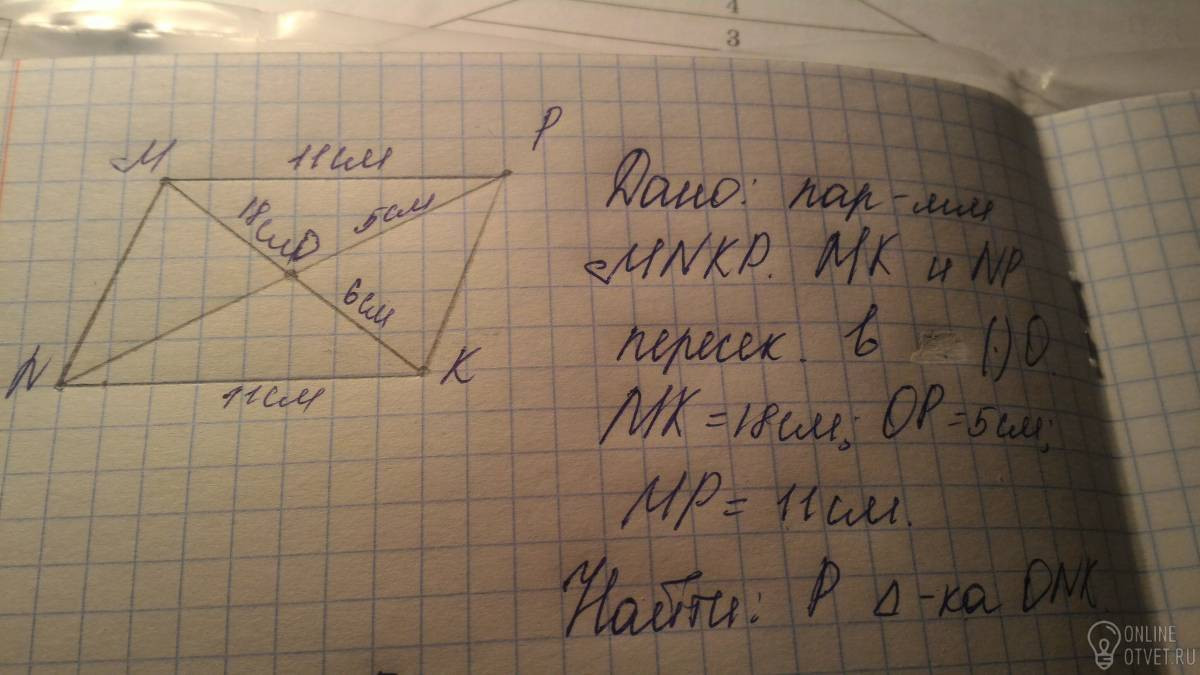 4
3
M
11см
P
18см
O
5см
6см
N
11см
K
Дано: пар-мм
MNKP. MK и NP
пересек. в (·)O.
MK=18см; OP=5см;
MP= 11см.
Найти: P Δ-ка ONK.
ONLINE
OTVET.RU